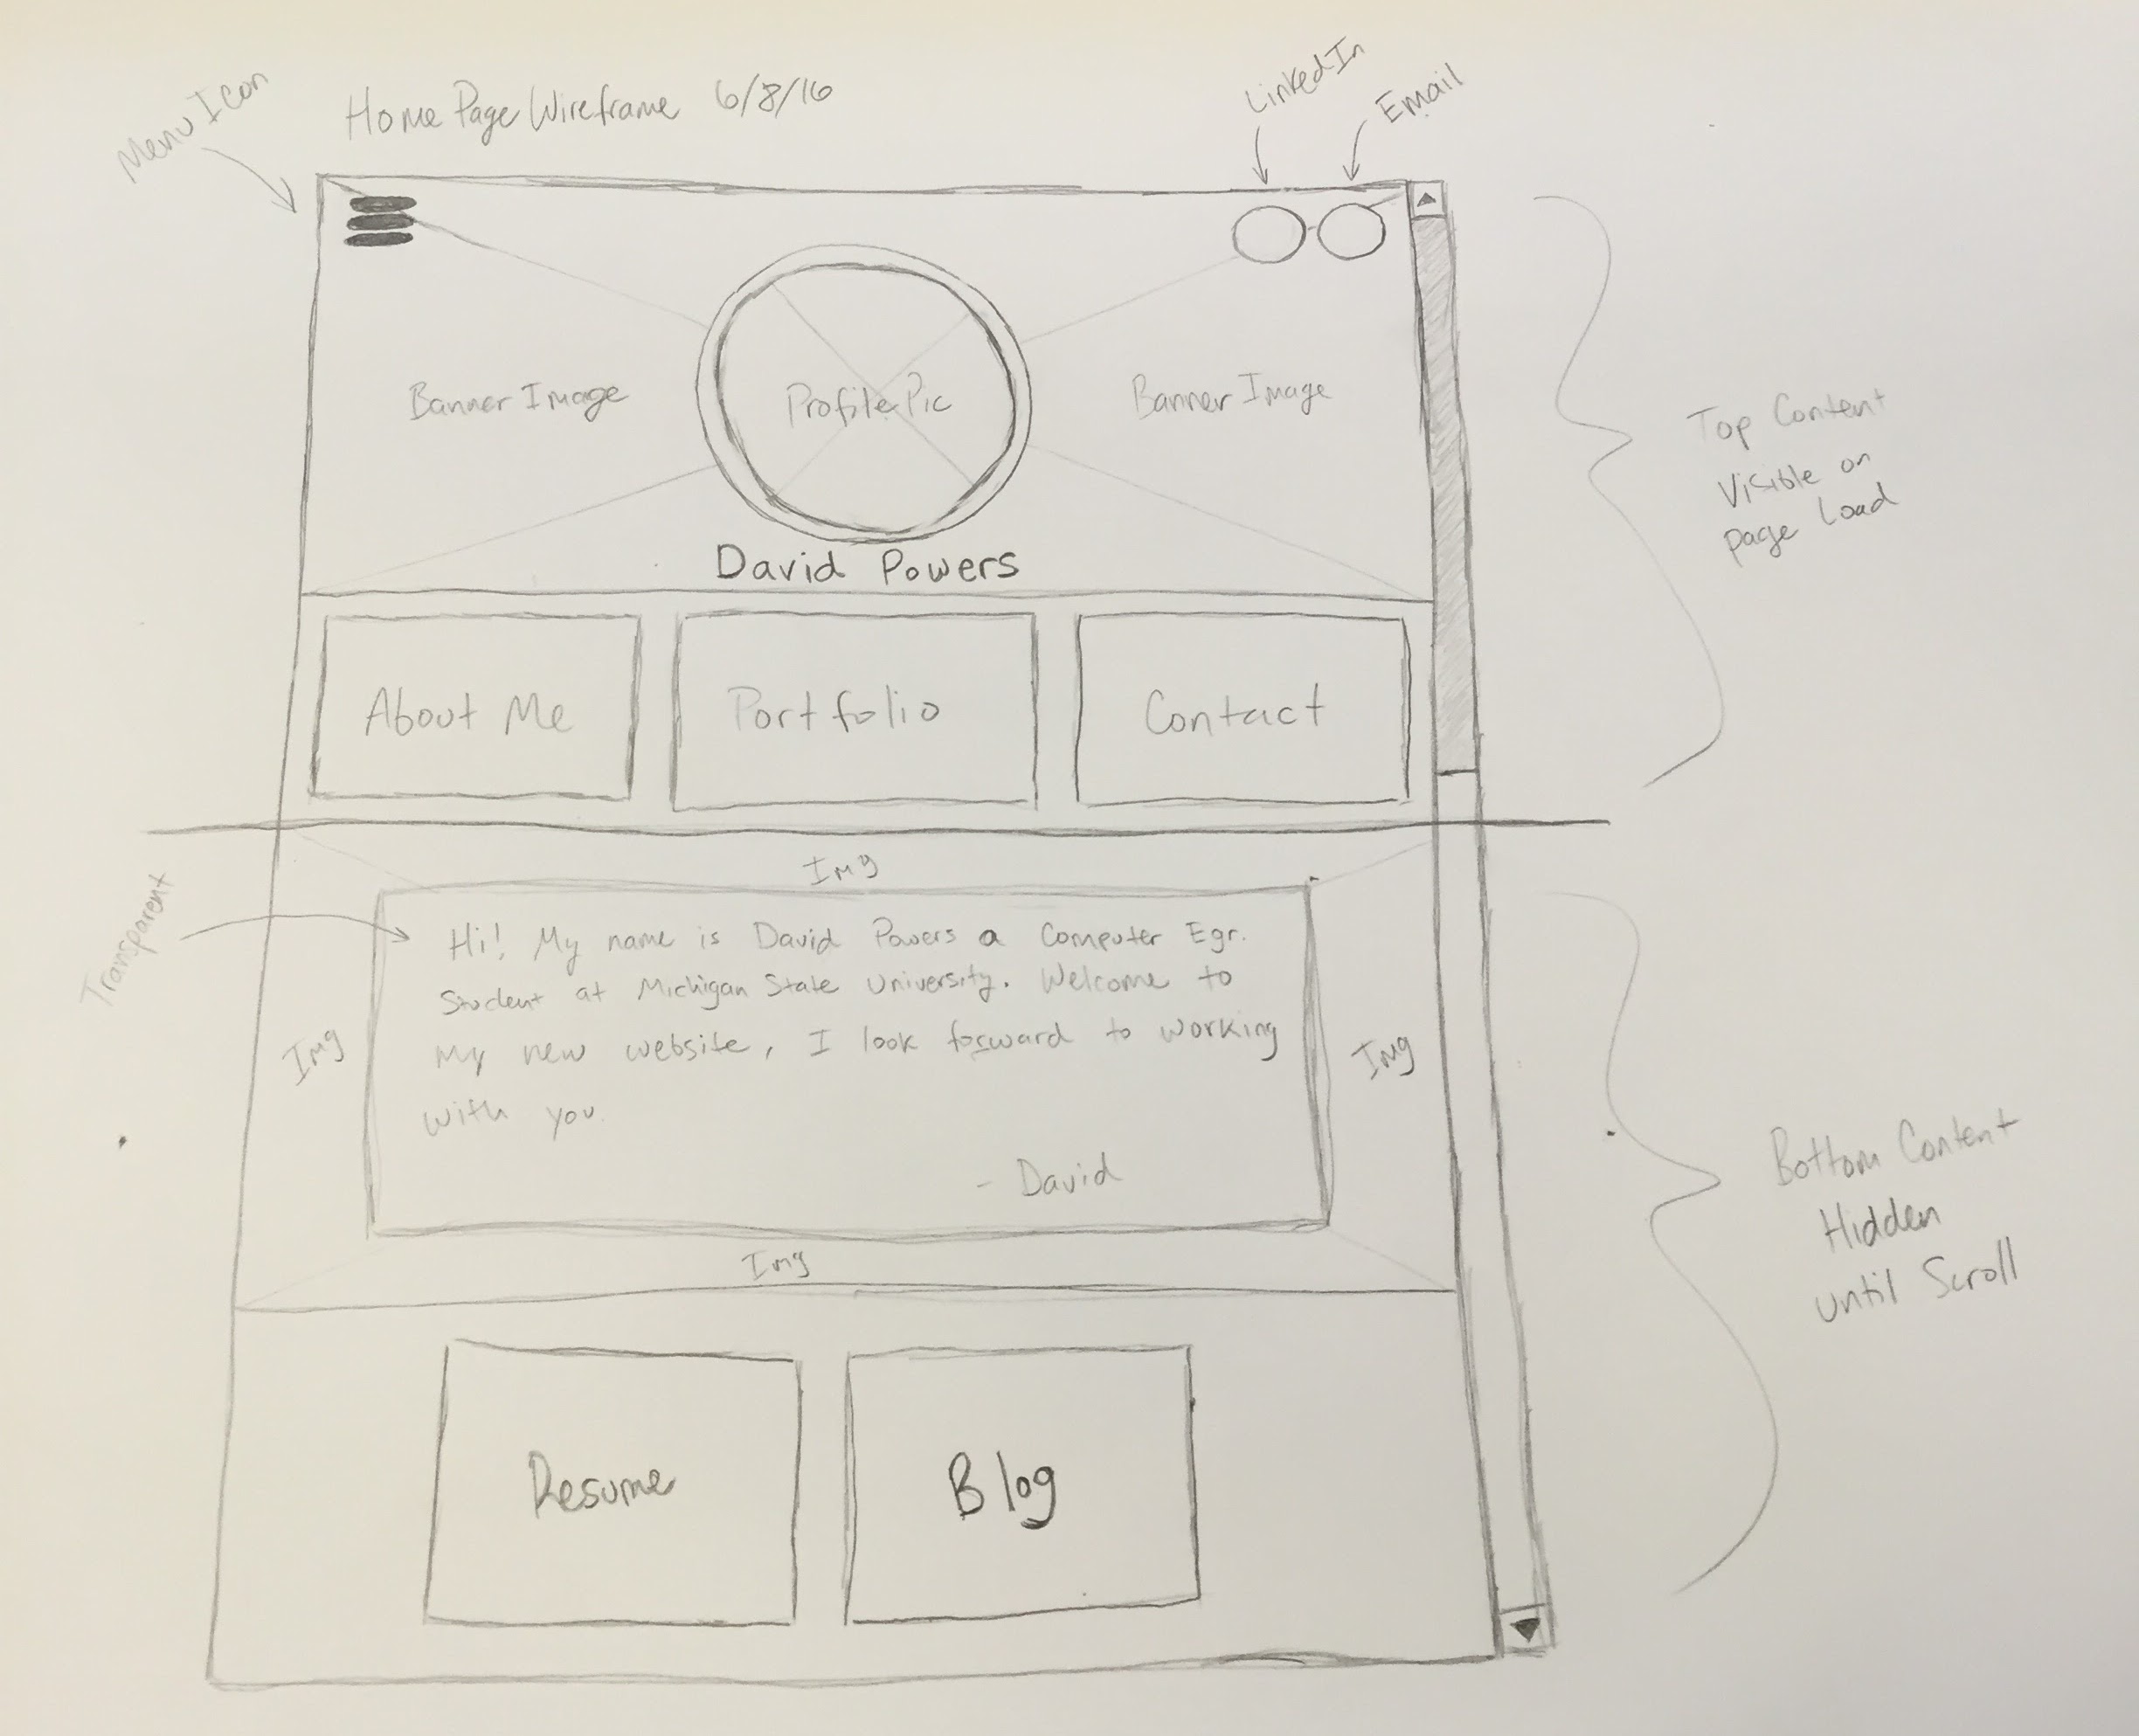 Home Page Wireframe 6/8/16
Menu Icon
LinkedIn
Email
Banner Image
Profile Pic
Banner Image
David Powers
Top Content
Visible on
page Load
About Me
Portfolio
Contact
Img
Transparent
Hi! My name is David Powers a Computer Egr.
Student at Michigan State University. Welcome to
my new website, I look forward to working
with you.
- David
Img
Img
Img
Bottom Content
Hidden
until Scroll
Resume
Blog